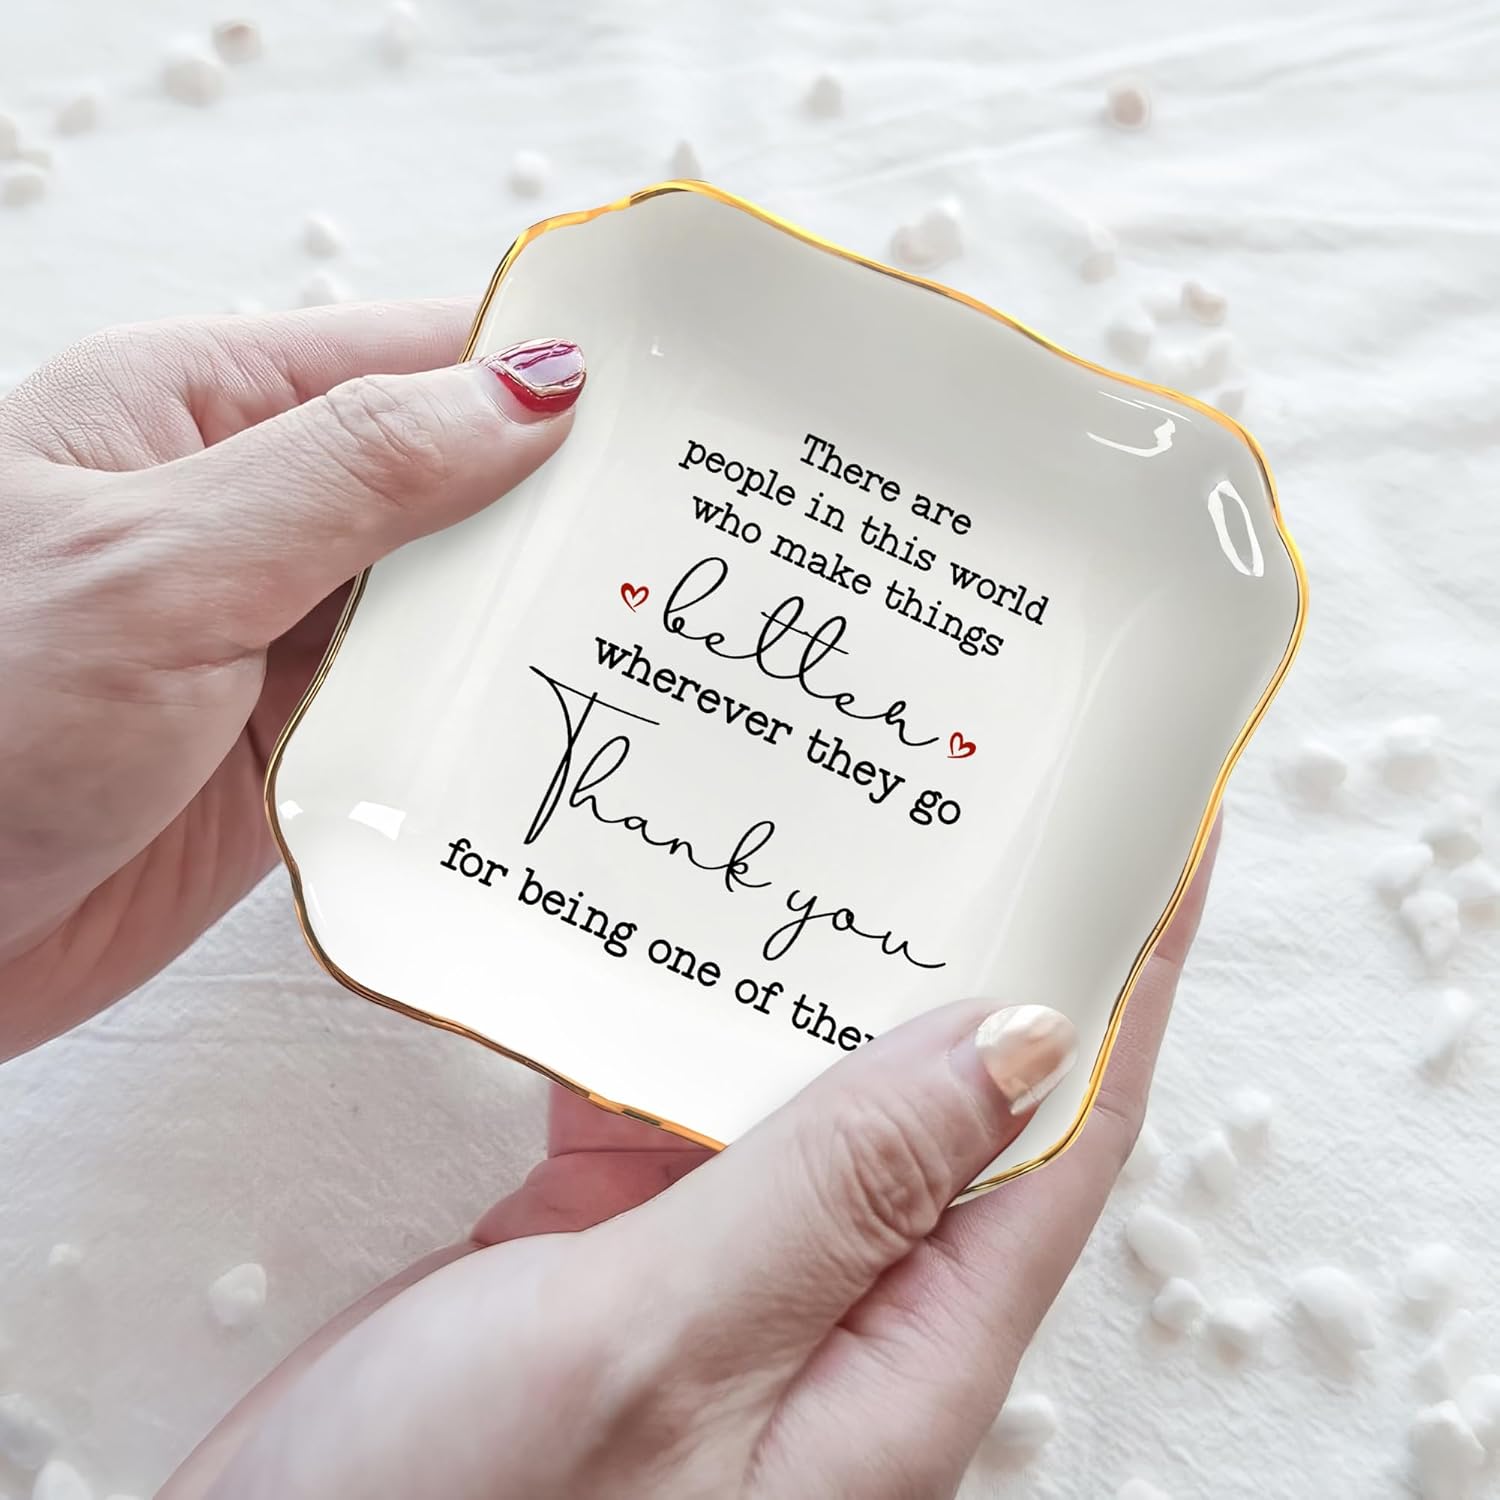 There are
people in this world
who make things
better
wherever they go
Thank you
for being one of